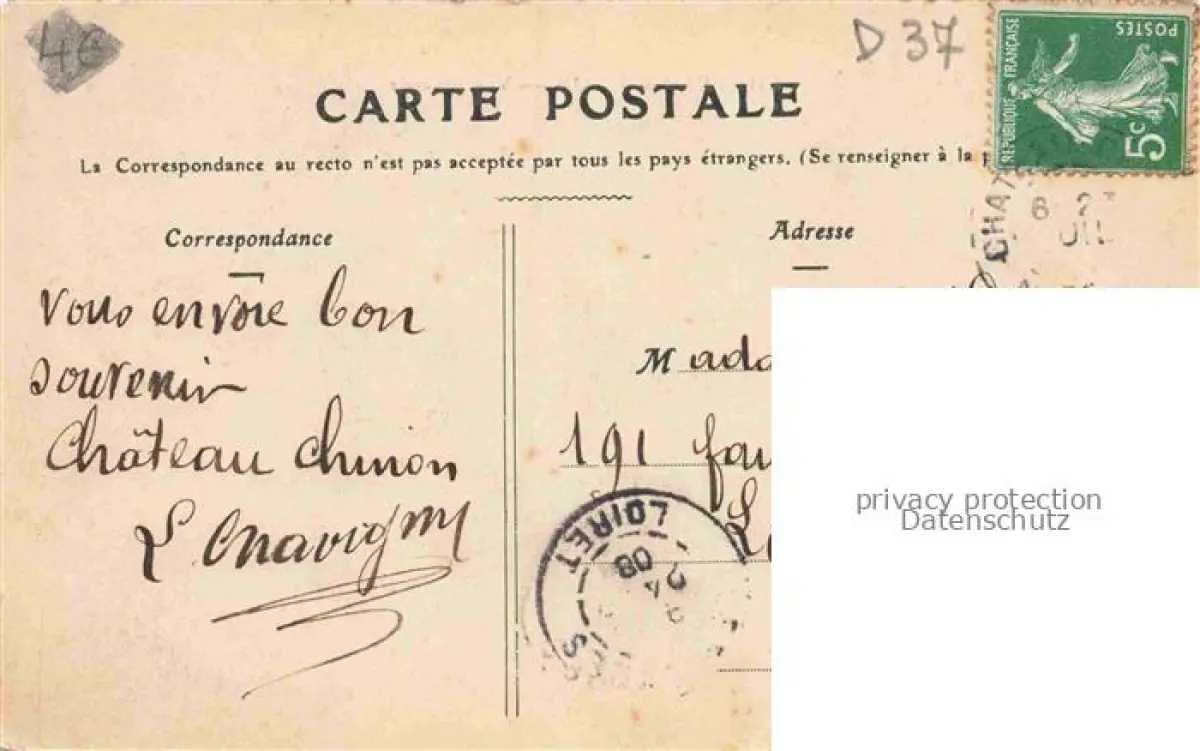 4C
D 37
RÉPUBLIQUE FRANÇAISE
POSTES
5c
CARTE POSTALE
La Correspondance au recto n'est pas acceptée par tous les pays étrangers. (Se renseigner à la p
CHAT
6 27
Correspondance
Adresse
Vous envoie bon
souvenir
Château Chinon
Mada
191 fau
LOIRET
08
privacy protection
Datenschutz